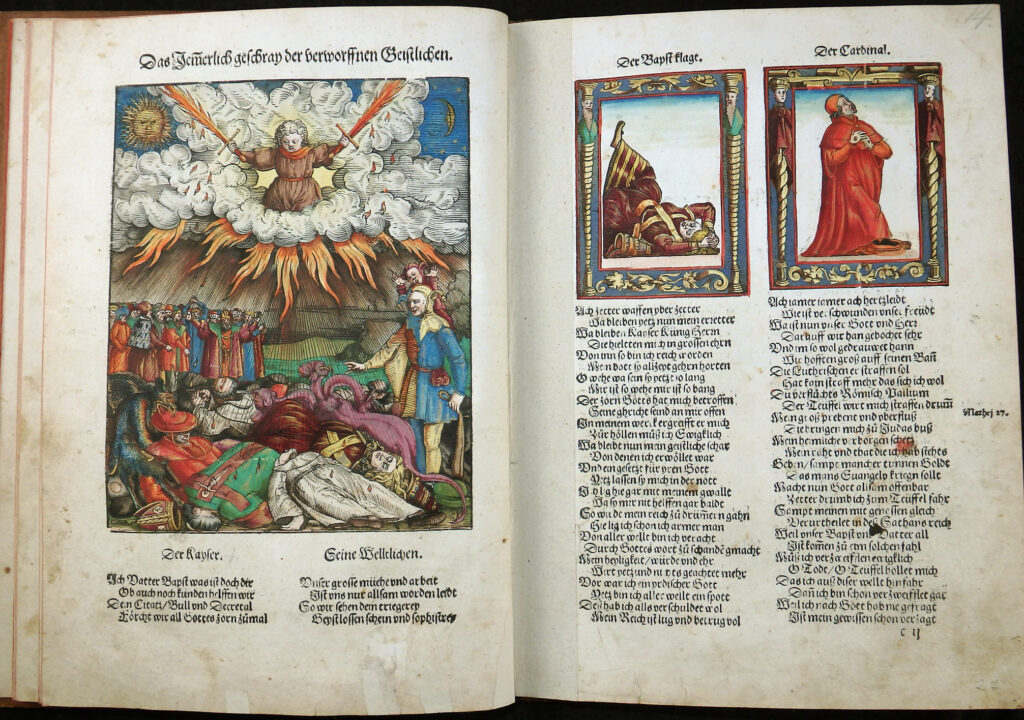 Das Jem̃erlich geschray der verworffnen Geistlichen.
Der Kayser.
Ach Vatter Bapst was ist doch dir
Ob auch noch kunden helffen wir
Dein Citatz/ Bull vnd Decretal
Förcht wir all Gottes zorn zůmal
Seine Weltlichen.
Vnser grosse müehe vnd arbeit
Ist vns nur allsam worden leidt
So wir sehen dein triegerey
Geystlossen schein vnd sophistrey
Der Bapst klage.
Ach zetter waffen vber zetter
Wa bleiben yetz nun mein erretter
Wa bleiben Kayser Künig Herrn
Die hielten mich in grossen ehrn
Von inn so bin ich reich worden
Mein bott so allzeyt gehrn horten
O wehe wa sein sy yetz so lang
Mir ist so wehe mir ist so bang
Der zorn Gottes hat mich betroffen
Seine ghricht send an mir offen
In meinem werck ergreifft er mich
Zur höllen můß ich Ewigklich
Wa bleibt nun mein geistliche schar
Von denen ich erwöllet war
Vnd eingesetzt für yren Gott
Yetz lassen sy mich in der nott
Ich lig hie gar mit meinem gwallt
Wa sy mir nit helffen gar baldt
So wirde mein reich zu drim̃ern gahn
Hie lig ich schon ich armer man
Von aller wellt bin ich veracht
Durch Gottes wort zů schandē gmacht
Mein heyligkeit/ würde vnd ehr
Wirt yetzund nit geachtet mehr
Vor war ich ein yrdischer Gott
Yetz bin ich aller wellt ein spott
Deß hab ich alls verschuldet wol
Mein Reich ist lug vnd betrug vol
Der Cardinal.
Ach iamer iamer ach hertzleidt
Wie ist verschwunden vnser freüdt
Wa ist nun vnser Gott vnd Herr
Darauff wir han gebochet sehr
Vnd im so wol gedrauwet hann
Wir hofften groß auff seinen Bañ
Die Lutherischen er straffen sol
Hat kain straff mehr das sich ich wol
Du verflůchts Römisch Pallium
Der Teüffel wirt mich straffen drum̃
Mein groß prebent vnd vberfluß
Die bringen mich zů Judas bůß
Mathej 27.
Mein heimliche verborgen schetz
Mein raht vnd that die ich hab stehts
Geben/ sampt mancher tunnen Goldt
Das mans Euangely kriegen sollt
Macht nun Gott allsam offenbar
Zetter drumb ich zum Teüffel fahr
Sampt meinen mit genossen gleich
Verurtheilet in deß Sathans reich
Weil vnser Bapst vnd Vatter all
Ist kom̃en zů eim solchen fahl
Můß ich verzweiflen ewigklich
O Todt/ O Teüffel hollet mich
Das ich auß diser wellt hin fahr
Dañ ich bin schon verzweiflet gar
Weil ich nach Gott hab nie gefragt
Ist mein gewissen schon verzagt
C ij